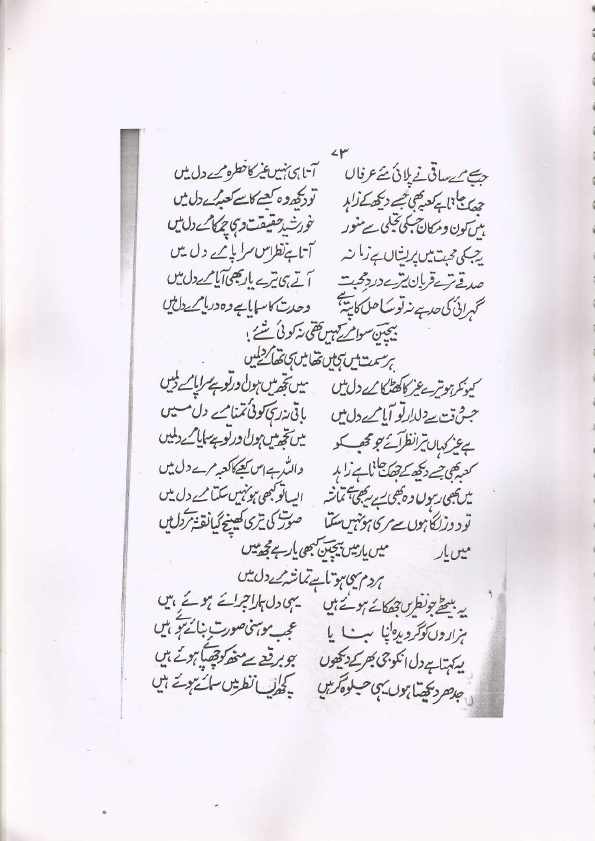 ۷۳
جب سے مرے ساقی نے پلائی مئے عرفاں آتا ہی نہیں غیر کا خطرہ مرے دل میں
جھک جاتا ہے کعبہ بھی جسے دیکھ کے زاہد تو دیکھ وہ کعبے کا ہے کعبہ مرے دل میں
ہیں کون و مکاں جسکی تجلی سے منور خورشید حقیقت وہی چمکا مرے دل میں
یہ جسکی محبت میں پریشاں ہے زمانہ آتا ہے نظر اس سراپا مرے دل میں
صدقے ترے قربان ترے درد محبت آتے ہی ترے یار بھی آیا مرے دل میں
گہرائی کی حد ہے نہ تو ساحل کا پتہ ہے وحدت کا سمایا ہے وہ دریا مرے دل میں
بیچین سوا مرے کہیں بھی نہ کوئی شئے!
ہر سمت میں ہی میں تھا میں ہی تھا مرے دل میں
کیونکر ہو ترے غیر کا کھٹکا مرے دل میں میں تجھ میں ہوں اور تو ہے سراپا مرے دل میں
جس وقت سے دلدار تو آیا مرے دل میں باقی نہ رہی کوئی تمنا مرے دل میں
ہے غیر کہاں تیرا نظر آئے جو مجھکو میں تجھ میں ہوں اور تو ہے سمایا مرے دل میں
کعبہ بھی جسے دیکھ کے جھک جاتا ہے زاہد واللہ ہے اس کعبے کا کعبہ مرے دل میں
میں بھی رہوں وہ بھی رہے یہ بھی ہے تماشہ ایسا تو کبھی ہو نہیں سکتا مرے دل میں
تو دور نگاہوں سے مری ہو نہیں سکتا صورت کی تری کھینچ گیا نقشہ مرے دل میں
میں یار میں یار میں بیچین کبھی یار ہے مجھ میں
ہر دم یہی ہوتا ہے تماشہ مرے دل میں
یہ بیٹھے جو نظریں جھکائے ہوئے ہیں یہی دل ہمارا چرائے ہوئے ہیں
ہزاروں کو گرویدہ اپنا بنایا عجب موہنی صورت بنائے ہوئے ہیں
یہ کہتا ہے دل انکو جی بھر کے دیکھوں جو برقعے سے منھ کو چھپائے ہوئے ہیں
جدھر دیکھتا ہوں یہی جلوہ گر ہیں کچھ ایسا نظر میں سمائے ہوئے ہیں